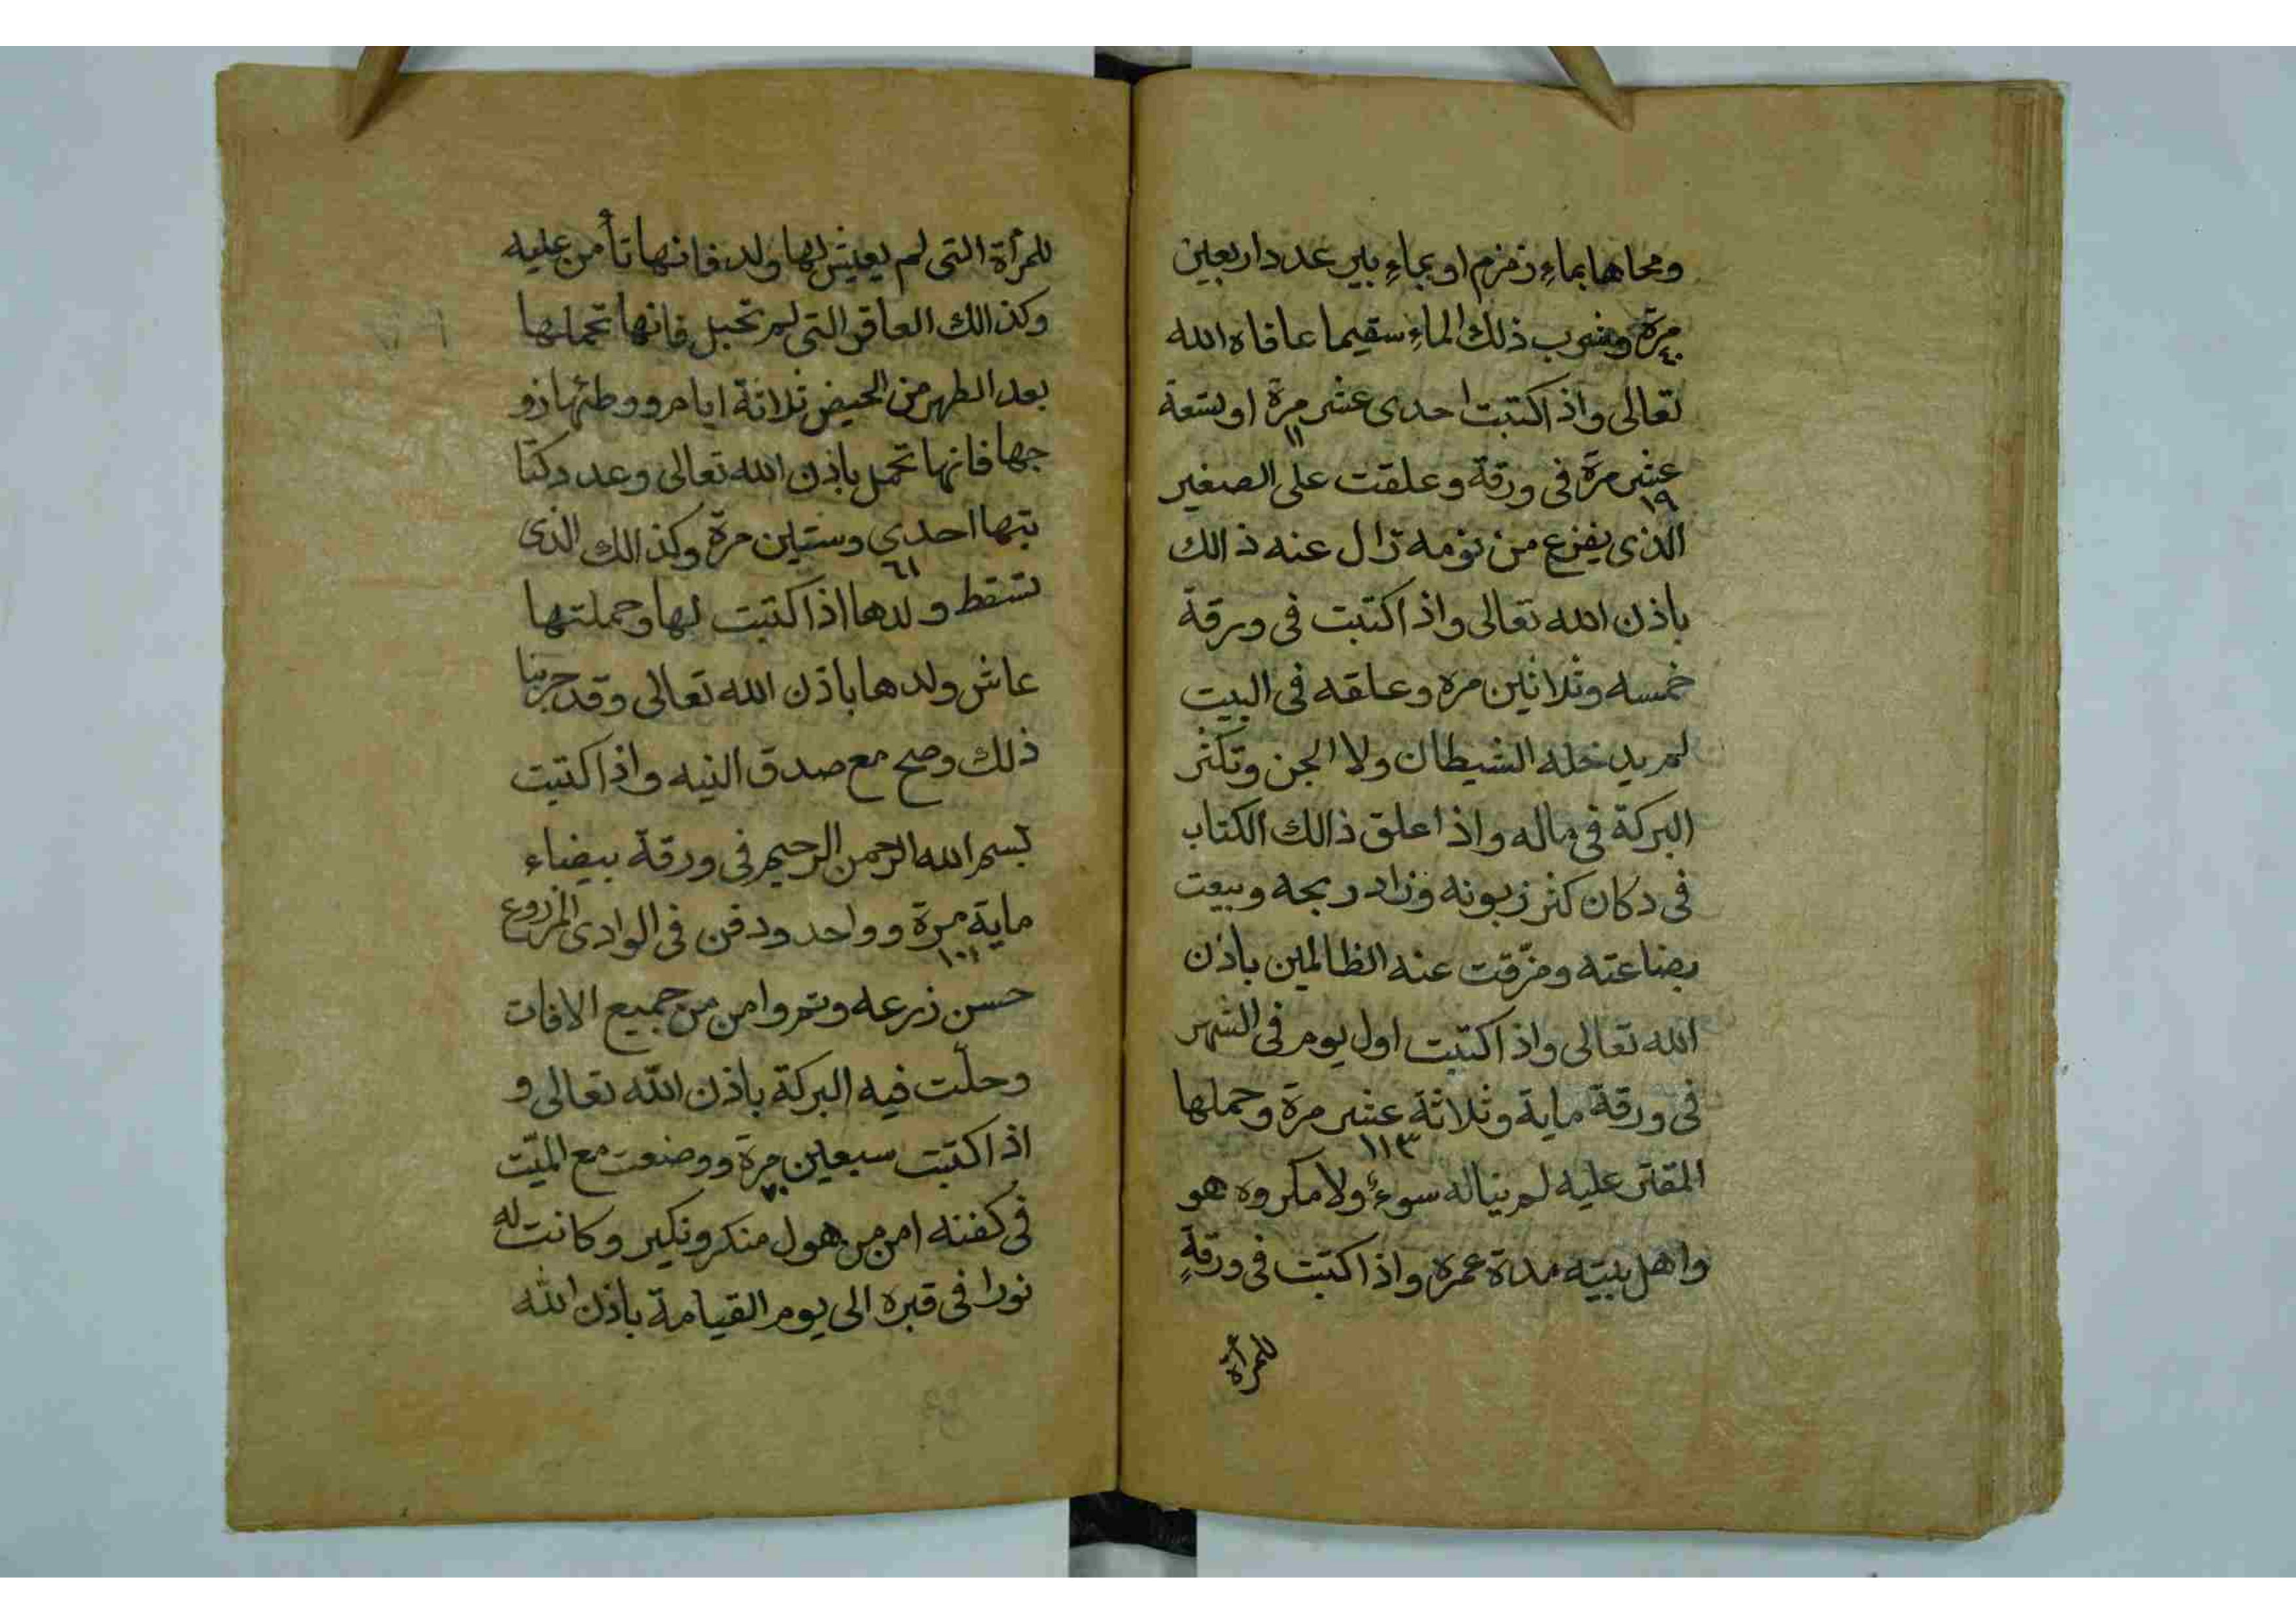 ومحاها بماء زمزم او بماء بير عدد اربعين
مرة وشرب ذلك الماء سقيما عافاه الله
٤٠
تعالى واذا كتبت احدى عشر مرة او تسعة
١١
عشر مرة فى ورقة وعلقت على الصغير
١٩
الذى يفزع من نومه زال عنه ذالك
باذن الله تعالى واذا كتبت فى ورقة
خمسه وثلاثين مره وعلقه فى البيت
لم يدخله الشيطان ولا الجن وتكثر
البركة فى ماله واذا علق ذالك الكتاب
فى دكان كثر زبونه وزاد ربحه وبيعت
بضاعته ومزّقت عنه الظالمين باذن
الله تعالى واذا كتبت اول يوم فى الشهر
فى ورقة ماية وثلاثة عشر مرة وحملها
١١٣
المقتر عليه لم يناله سوء ولا مكروه هو
واهل بيته مدة عمره واذا كتبت فى ورقةٍ
للمرأة
للمرأة التى لم يعيش لها ولد فانها تأمن عليه
وكذالك العاقر التى لم تحبل فانها تحملها
بعد الطهر من الحيض ثلاثة ايام ووطئها زو
جها فانها تحمل باذن الله تعالى وعدد كتا
بتها احدي وستين مرة وكذالك الذى
٦١
تسقط ولدها اذا كتبت لها وحملتها
عاش ولدها باذن الله تعالى وقد جربنا
ذلك وصح مع صدق النيه واذا كتبت
بسم الله الرحمن الرحيم فى ورقة بيضاء
ماية مرة وواحد ودفن فى الوادى المزروع
١٠١
حسن زرعه وتم وامن من جميع الافات
وحلّت فيه البركة باذن الله تعالى و
اذا كتبت سبعين مرة ووضعت مع الميّت
٧٠
فى كفنه امن من هول منكر ونكير وكانت له
نورا فى قبره الى يوم القيامة باذن الله